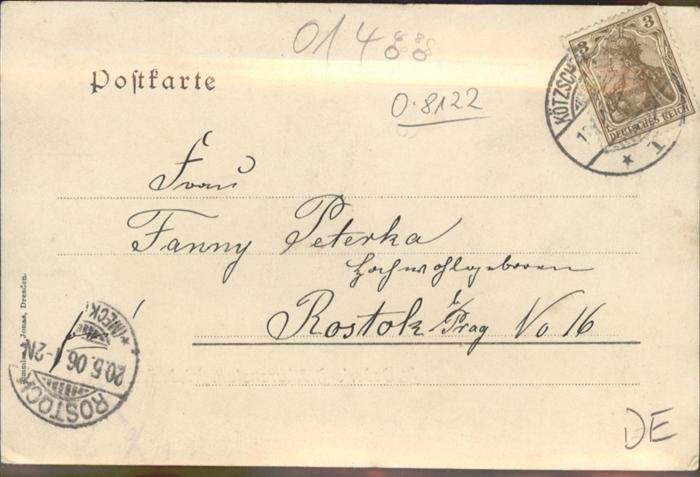 014
0.8122
Postkarte
3 3
DEUTSCHES REICH
KÖTZSCH
1
Frau
Fanny Peterka
Hochwohlgeboren
Rostok b/Prag No 16
Jonas, Dresden.
ROSTOCK
20.5.06
-2N
(MECKL
DE